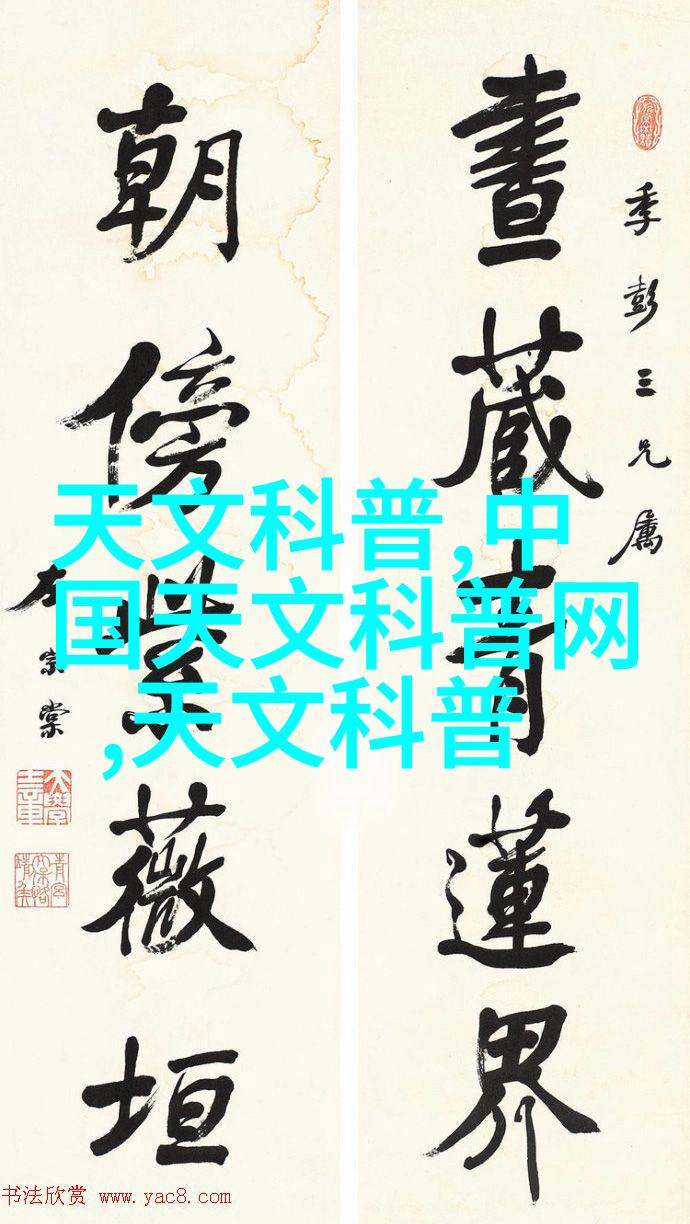 季彭三兄属
畫藏青蓮界
朝傍紫薇垣
左宗棠
天文科普,中
国天文科普网
,天文科普
书法欣赏 www.yac8.com